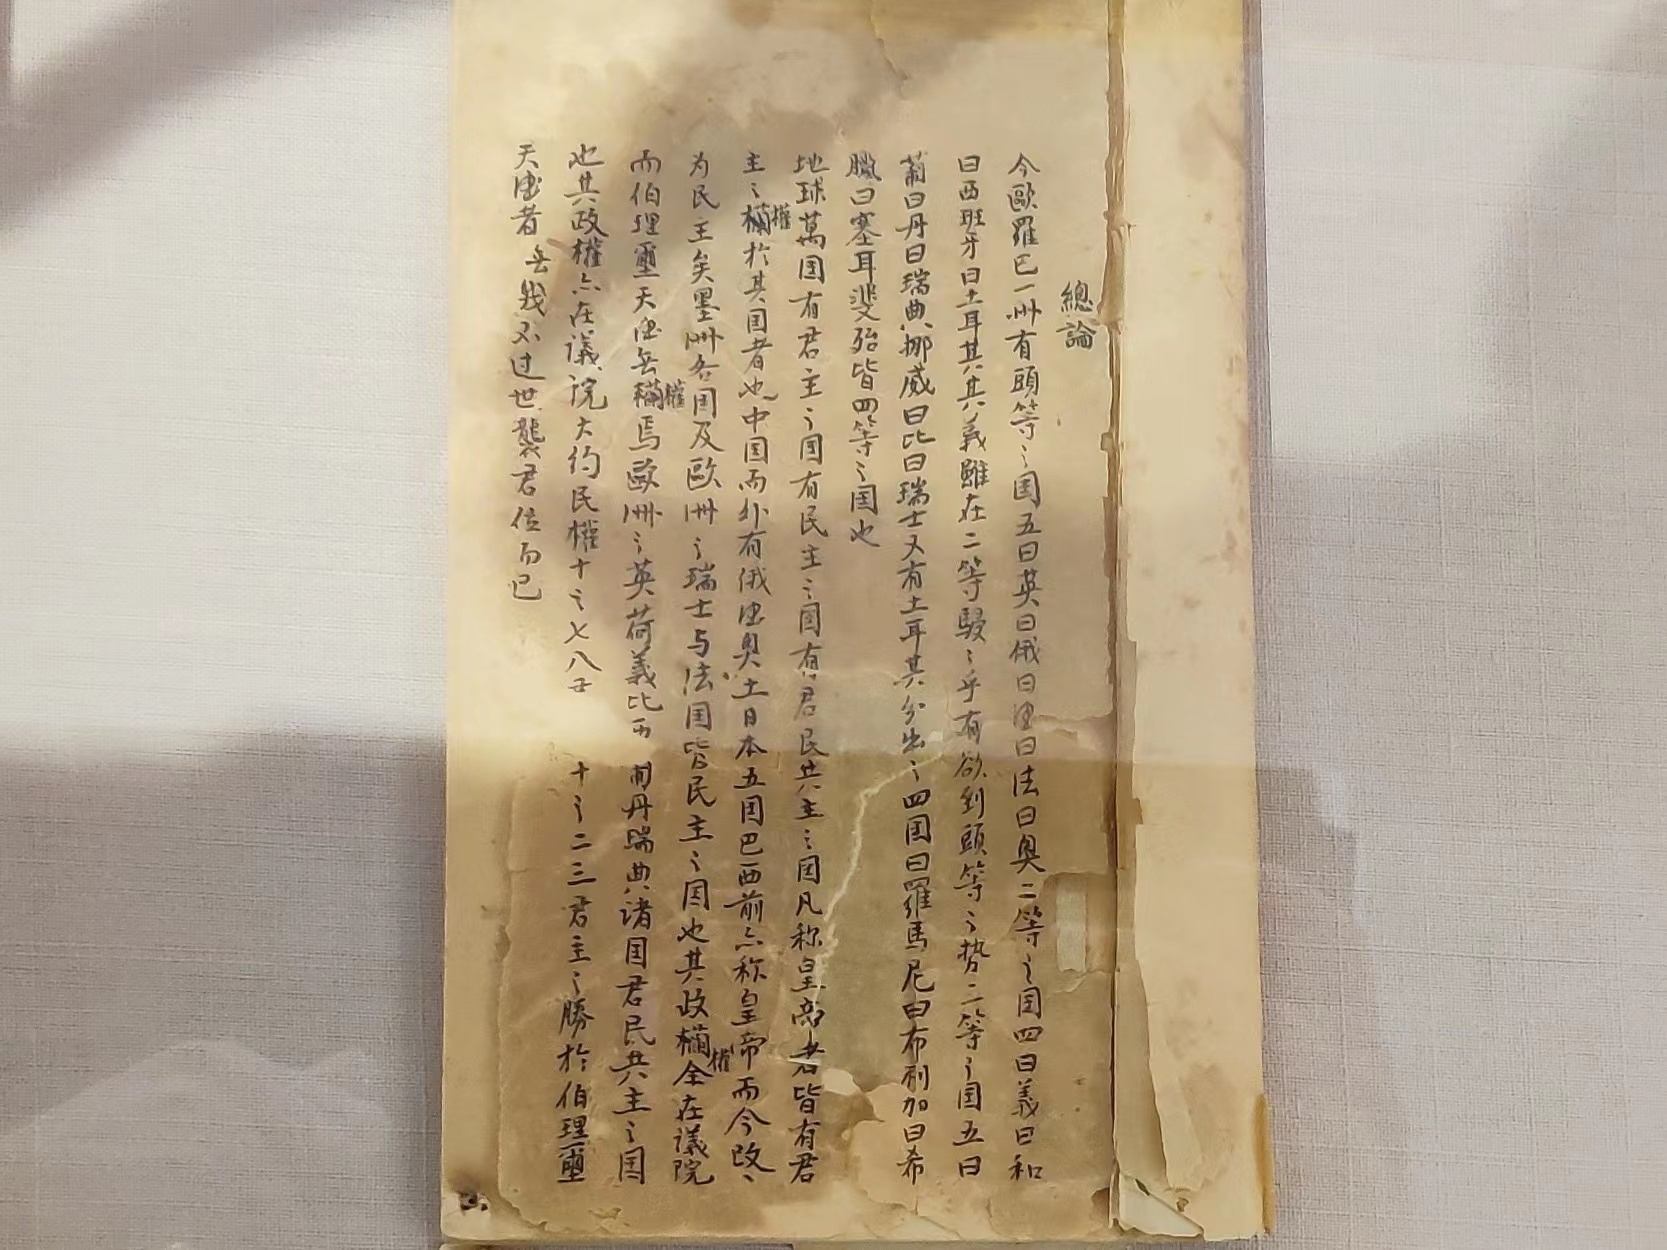 總論
今歐羅巴一洲有頭等之国五曰英曰俄曰德曰法曰奥二等之国四曰義曰和
曰西班牙曰土耳其其義雖在二等駸〻乎有欲到頭等之势三等之国五曰
葡曰丹曰瑞典挪威曰比曰瑞士又有土耳其分出之四国曰羅馬尼曰布利加曰希
臘曰塞耳斐殆皆四等之国也
地球萬国有君主之国有民主之国有君民共主之国凡称皇帝者皆有君
主之權於其国者也中国而外有俄德奥土日本五国巴西前亦称皇帝而今改
为民主矣墨洲各国及歐洲之瑞士与法国皆民主之国也其政權全在議院
而伯理璽天德無權焉歐洲之英荷義比西葡丹瑞典諸国君民共主之国
也其政權亦在議院大約民權十之七八 十之二三君主之勝於伯理璽
天德者無幾不过世襲君位而已